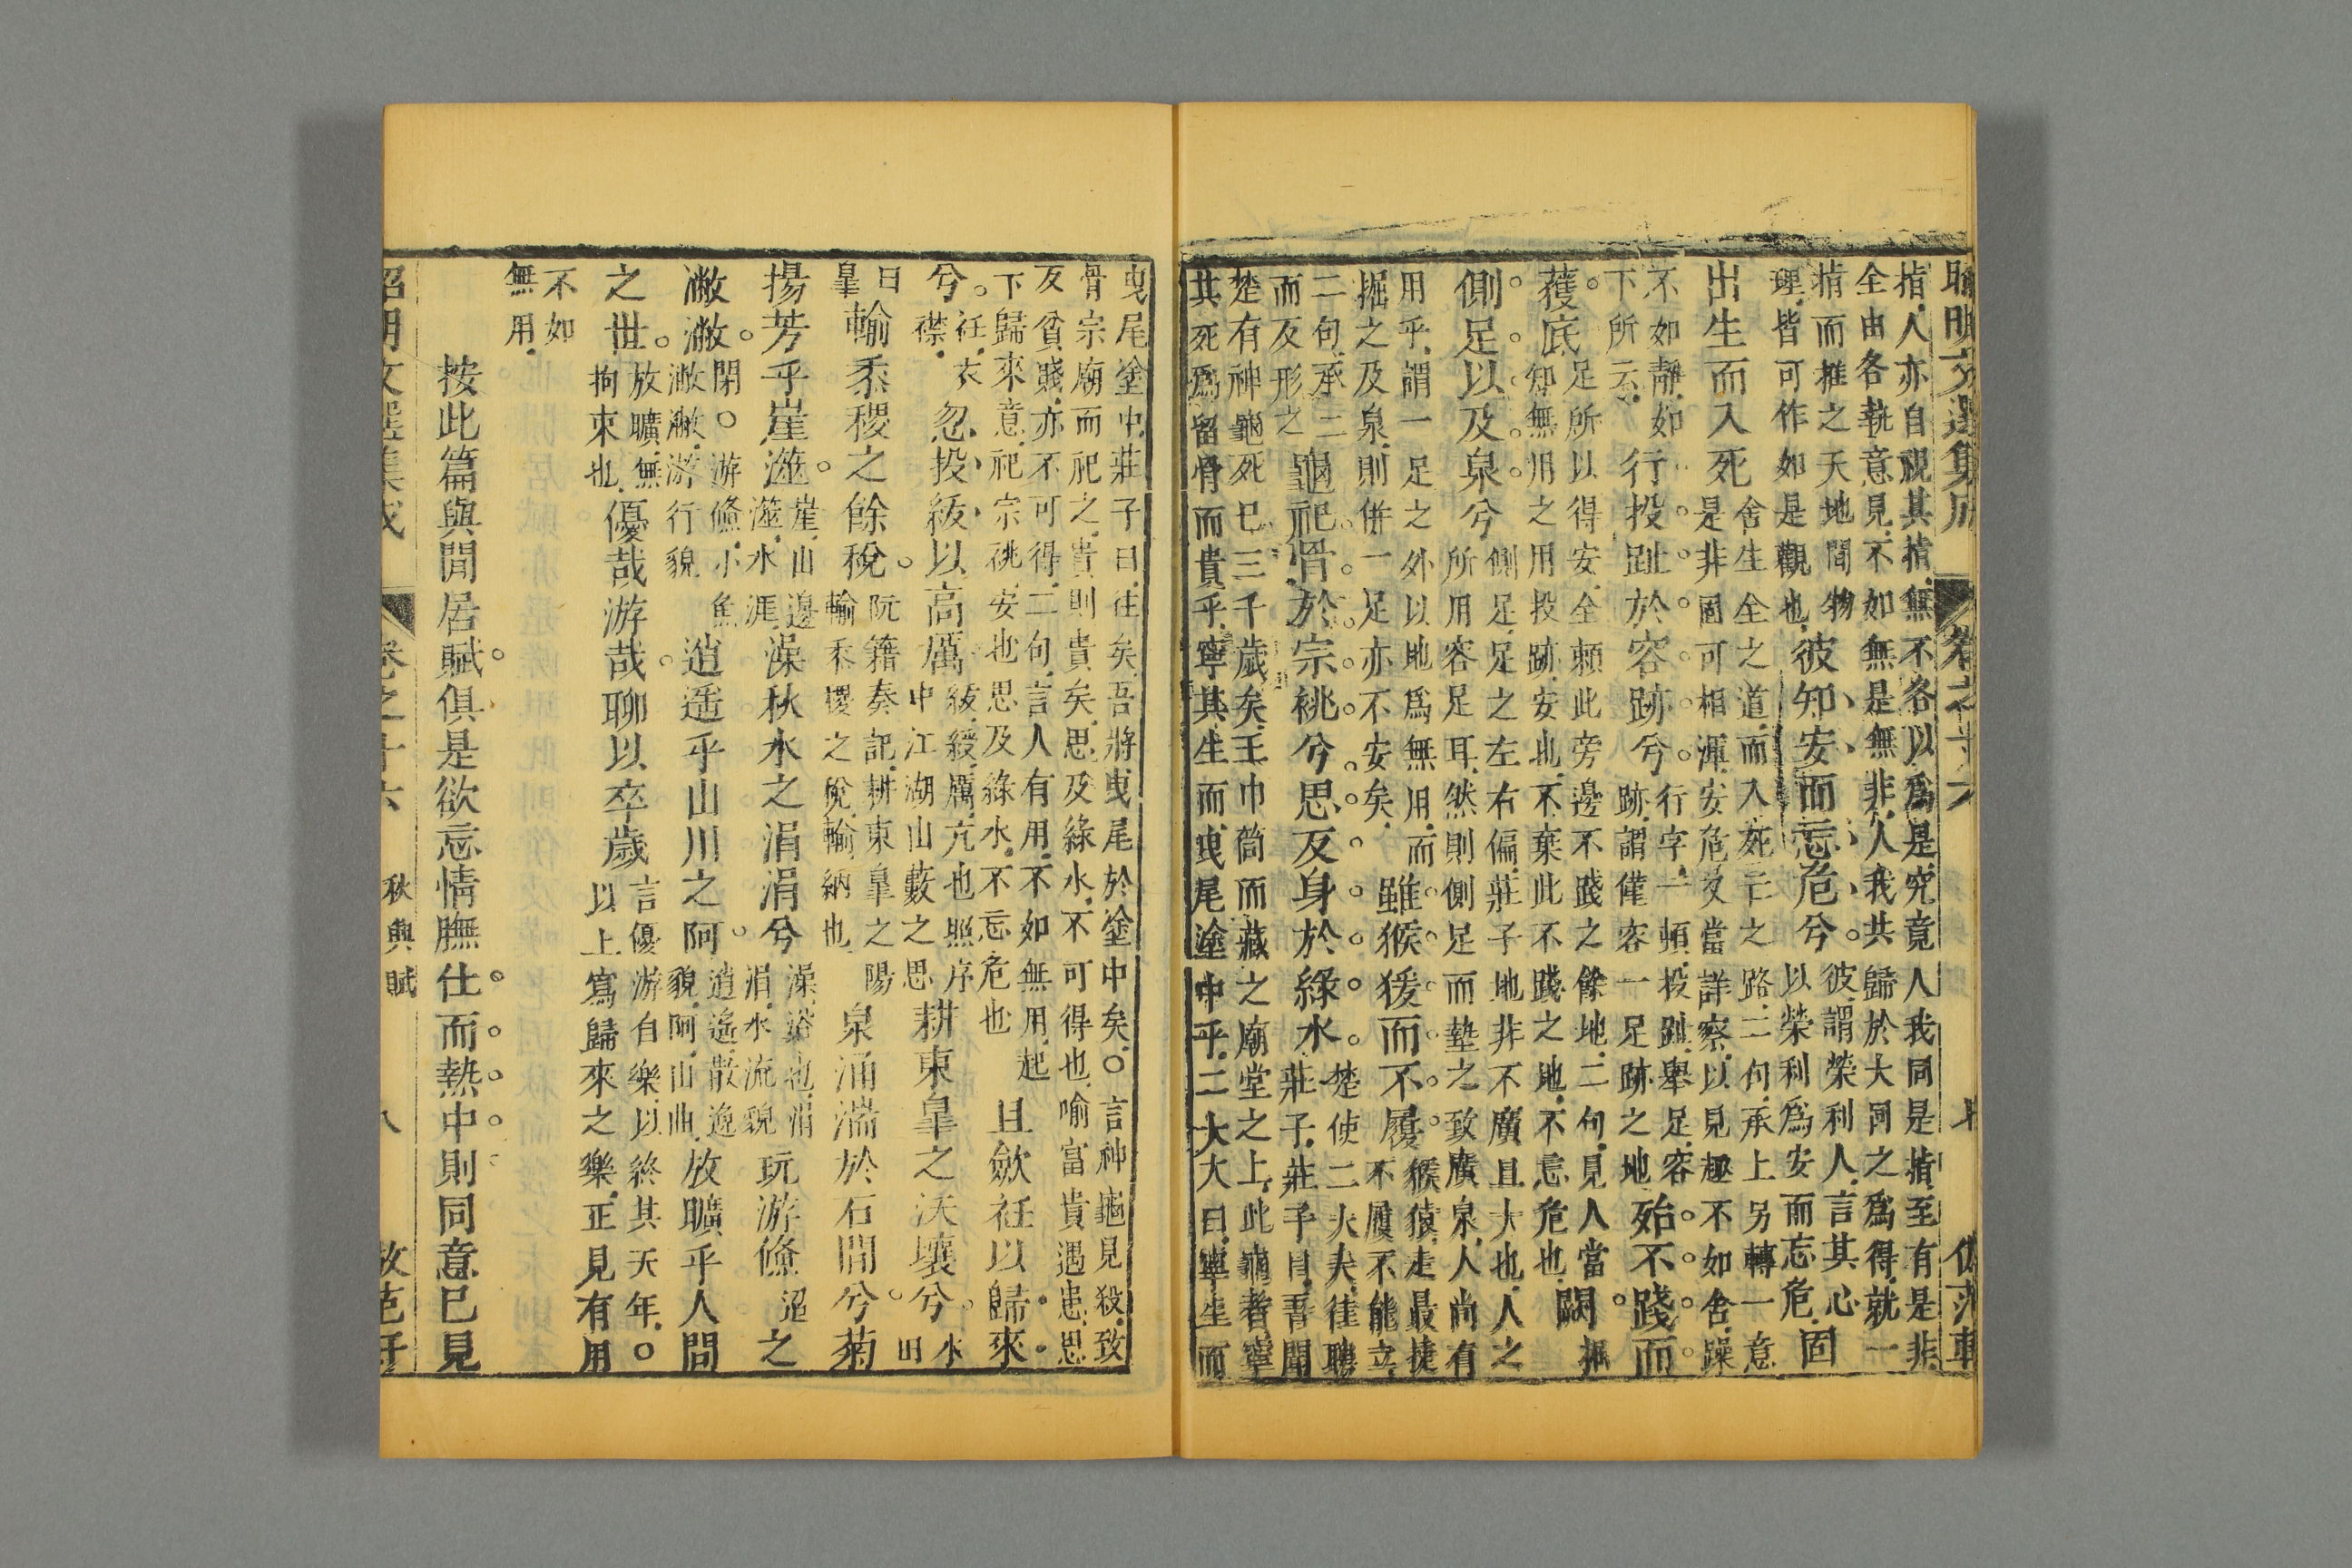 卷之十六 七
指人亦自視其指無不各以爲是究竟人我同是指至有是非
全由各執意見不如無是無非人我共歸於大同之爲得就一
指而推之天地間物
理皆可作如是觀也
彼知安而忘危兮
彼謂榮利人言其心
以榮利爲安而忘危
固
出生而入死
舍生全之道而入死亡之路二句承上另轉一意
是非固可相渾安危又當詳察以見趣不如舍躁
不如靜如
下所云
行投趾於容跡兮
行字一頓投趾舉足容
跡謂僅容一足跡之地
殆不踐而
獲底
足所以得安全賴此旁邊不踐之餘地二句見人當
知無用之用投跡安也不棄此不踐之地不忘危也
闕
掘
側足以及泉兮
側足足之左右偏莊子地非不廣且大也人之
所用容足耳然則側足而墊之致廣泉人尚有
用乎謂一足之外以地爲無用而
掘之及泉則併一足亦不安矣
雖猴猨而不履
猴猿走最捷
不履不能立
二句承二
而反形之
龜祀骨於宗祧兮思反身於綠水
楚使二大夫往聘
莊子莊子曰吾聞
楚有神龜死已三千歲矣王巾笥而藏之廟堂之上此龜者寧
其死爲留骨而貴乎寧其生而曳尾塗中乎二大大曰寧生而
曳尾塗中莊子曰往矣吾將曳尾於塗中矣○言神龜見殺致
骨宗廟而祀之貴則貴矣思及綠水不可得也喻富貴遇患思
反貧賤亦不可得二句言人有用不如無用起
下歸來意祀宗祧安也思及綠水不忘危也
且歛衽以歸來
兮
衽衣
襟
忽投紱以高厲
紱綬厲亢也照序
中江湖山藪之思
耕東皐之沃壤兮
水
田
曰
皐
輸黍稷之餘稅
阮籍奏記耕東皐之陽
輸黍稷之稅輸納也
泉涌湍於石間兮菊
揚芳乎崖澨
崖山邊
澨水涯
澡秋水之涓涓兮
澡浴也涓
涓水流貌
玩游儵
之
潎潎
閉○游儵小魚
潎潎游行貌
逍遥乎山川之阿
逍遙散逸
貌阿山曲
放曠乎人間
之世
放曠無
拘束也
優哉游哉聊以卒歲
言優游自樂以終其天年○
以上寫歸來之樂正見有用
不如
無用
按此篇與閒居賦俱是欲忘情膴仕而熱中則同意已見
昭明文選集成 卷之十六 秋興賦 八